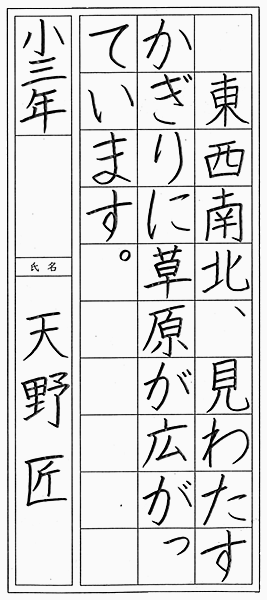 東西南北、見わたす
かぎりに草原が広がっ
ています。
小三年
氏名
天野匠